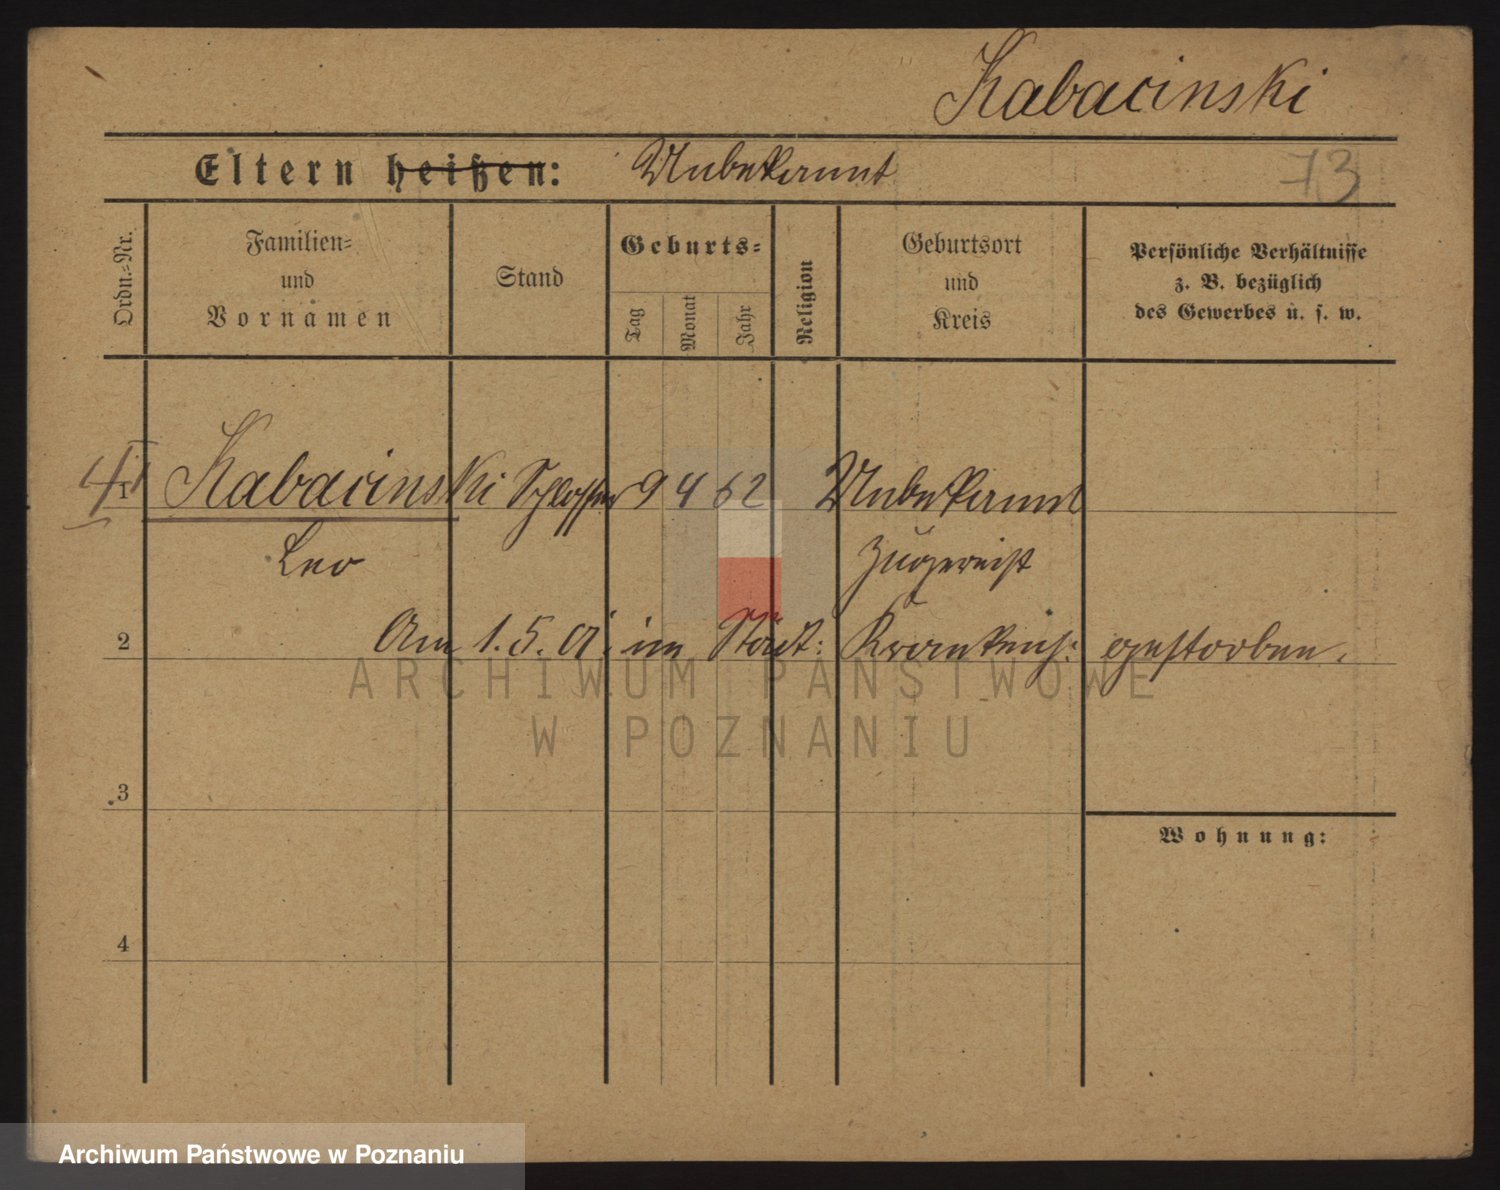 Kabacinski
Eltern heißen: Unbekannt
73
Ordn.-Nr.
Familien-
und
Vornamen
Stand
Geburts-
Tag
Monat
Jahr
Religion
Geburtsort
und
Kreis
Persönliche Verhältnisse
z. B. bezüglich
des Gewerbes u. s. w.
1 Kabacinski Schlosser 9 4 62 Unbekannt
Leo Zugereist
2 Am 1.5.01. im Städt: Krankenh: gestorben.
ARCHIWUM PAŃSTWOWE
W POZNANIU
3
Wohnung:
4
Archiwum Państwowe w Poznaniu